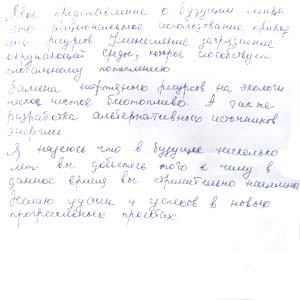 Мое представление о будущем мира
это рациональное использование природ
ных ресурсов Уменьшение загрязнение
окружающей среды, которое способствует
глобальному потеплению
Замена энергтных ресурсов на экологи
чистое биотопливо. А также
разработка альтернативных источников
энергии
Я надеюсь что в будущее несколько
лет вы добьетесь того к чему в
данное время вы стремительно нацелены
Желаю удачи и успехов в новых
прогрессивных проектах